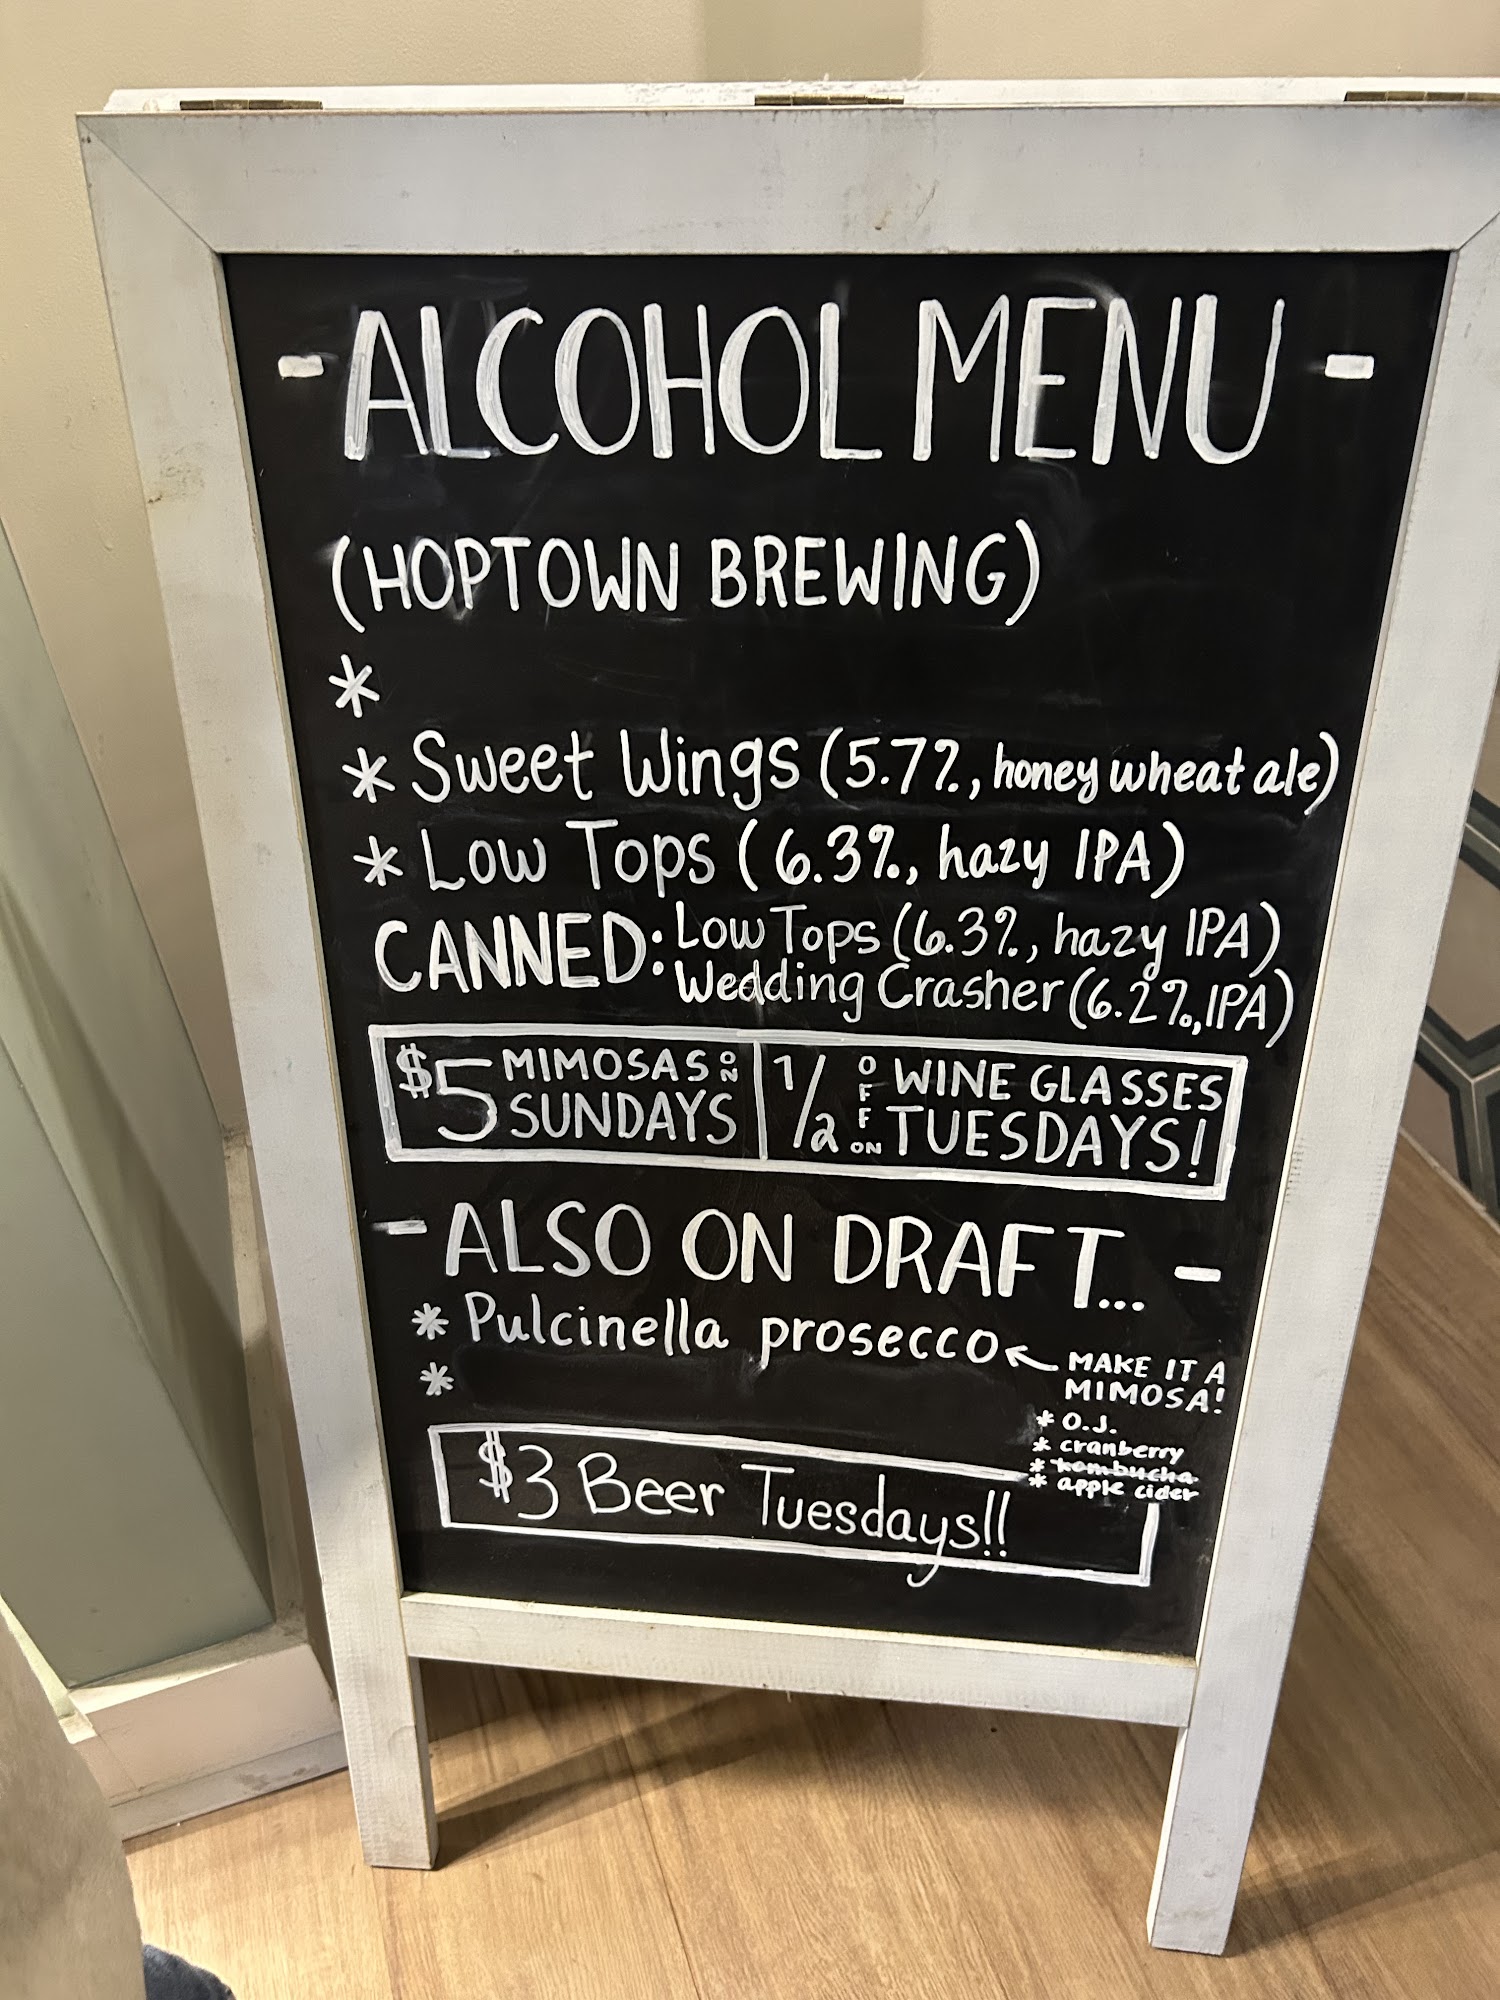 - ALCOHOL MENU -
(HOPTOWN BREWING)
*
* Sweet Wings (5.7%, honey wheat ale)
* Low Tops (6.3%, hazy IPA)
CANNED: Low Tops (6.3%, hazy IPA)
Wedding Crasher (6.2%, IPA)
$5 MIMOSAS ON SUNDAYS
1/2 OFF ON WINE GLASSES TUESDAYS!
- ALSO ON DRAFT... -
* Pulcinella prosecco
*
MAKE IT A
MIMOSA!
* O.J.
* cranberry
* kombucha
* apple cider
$3 Beer Tuesdays!!